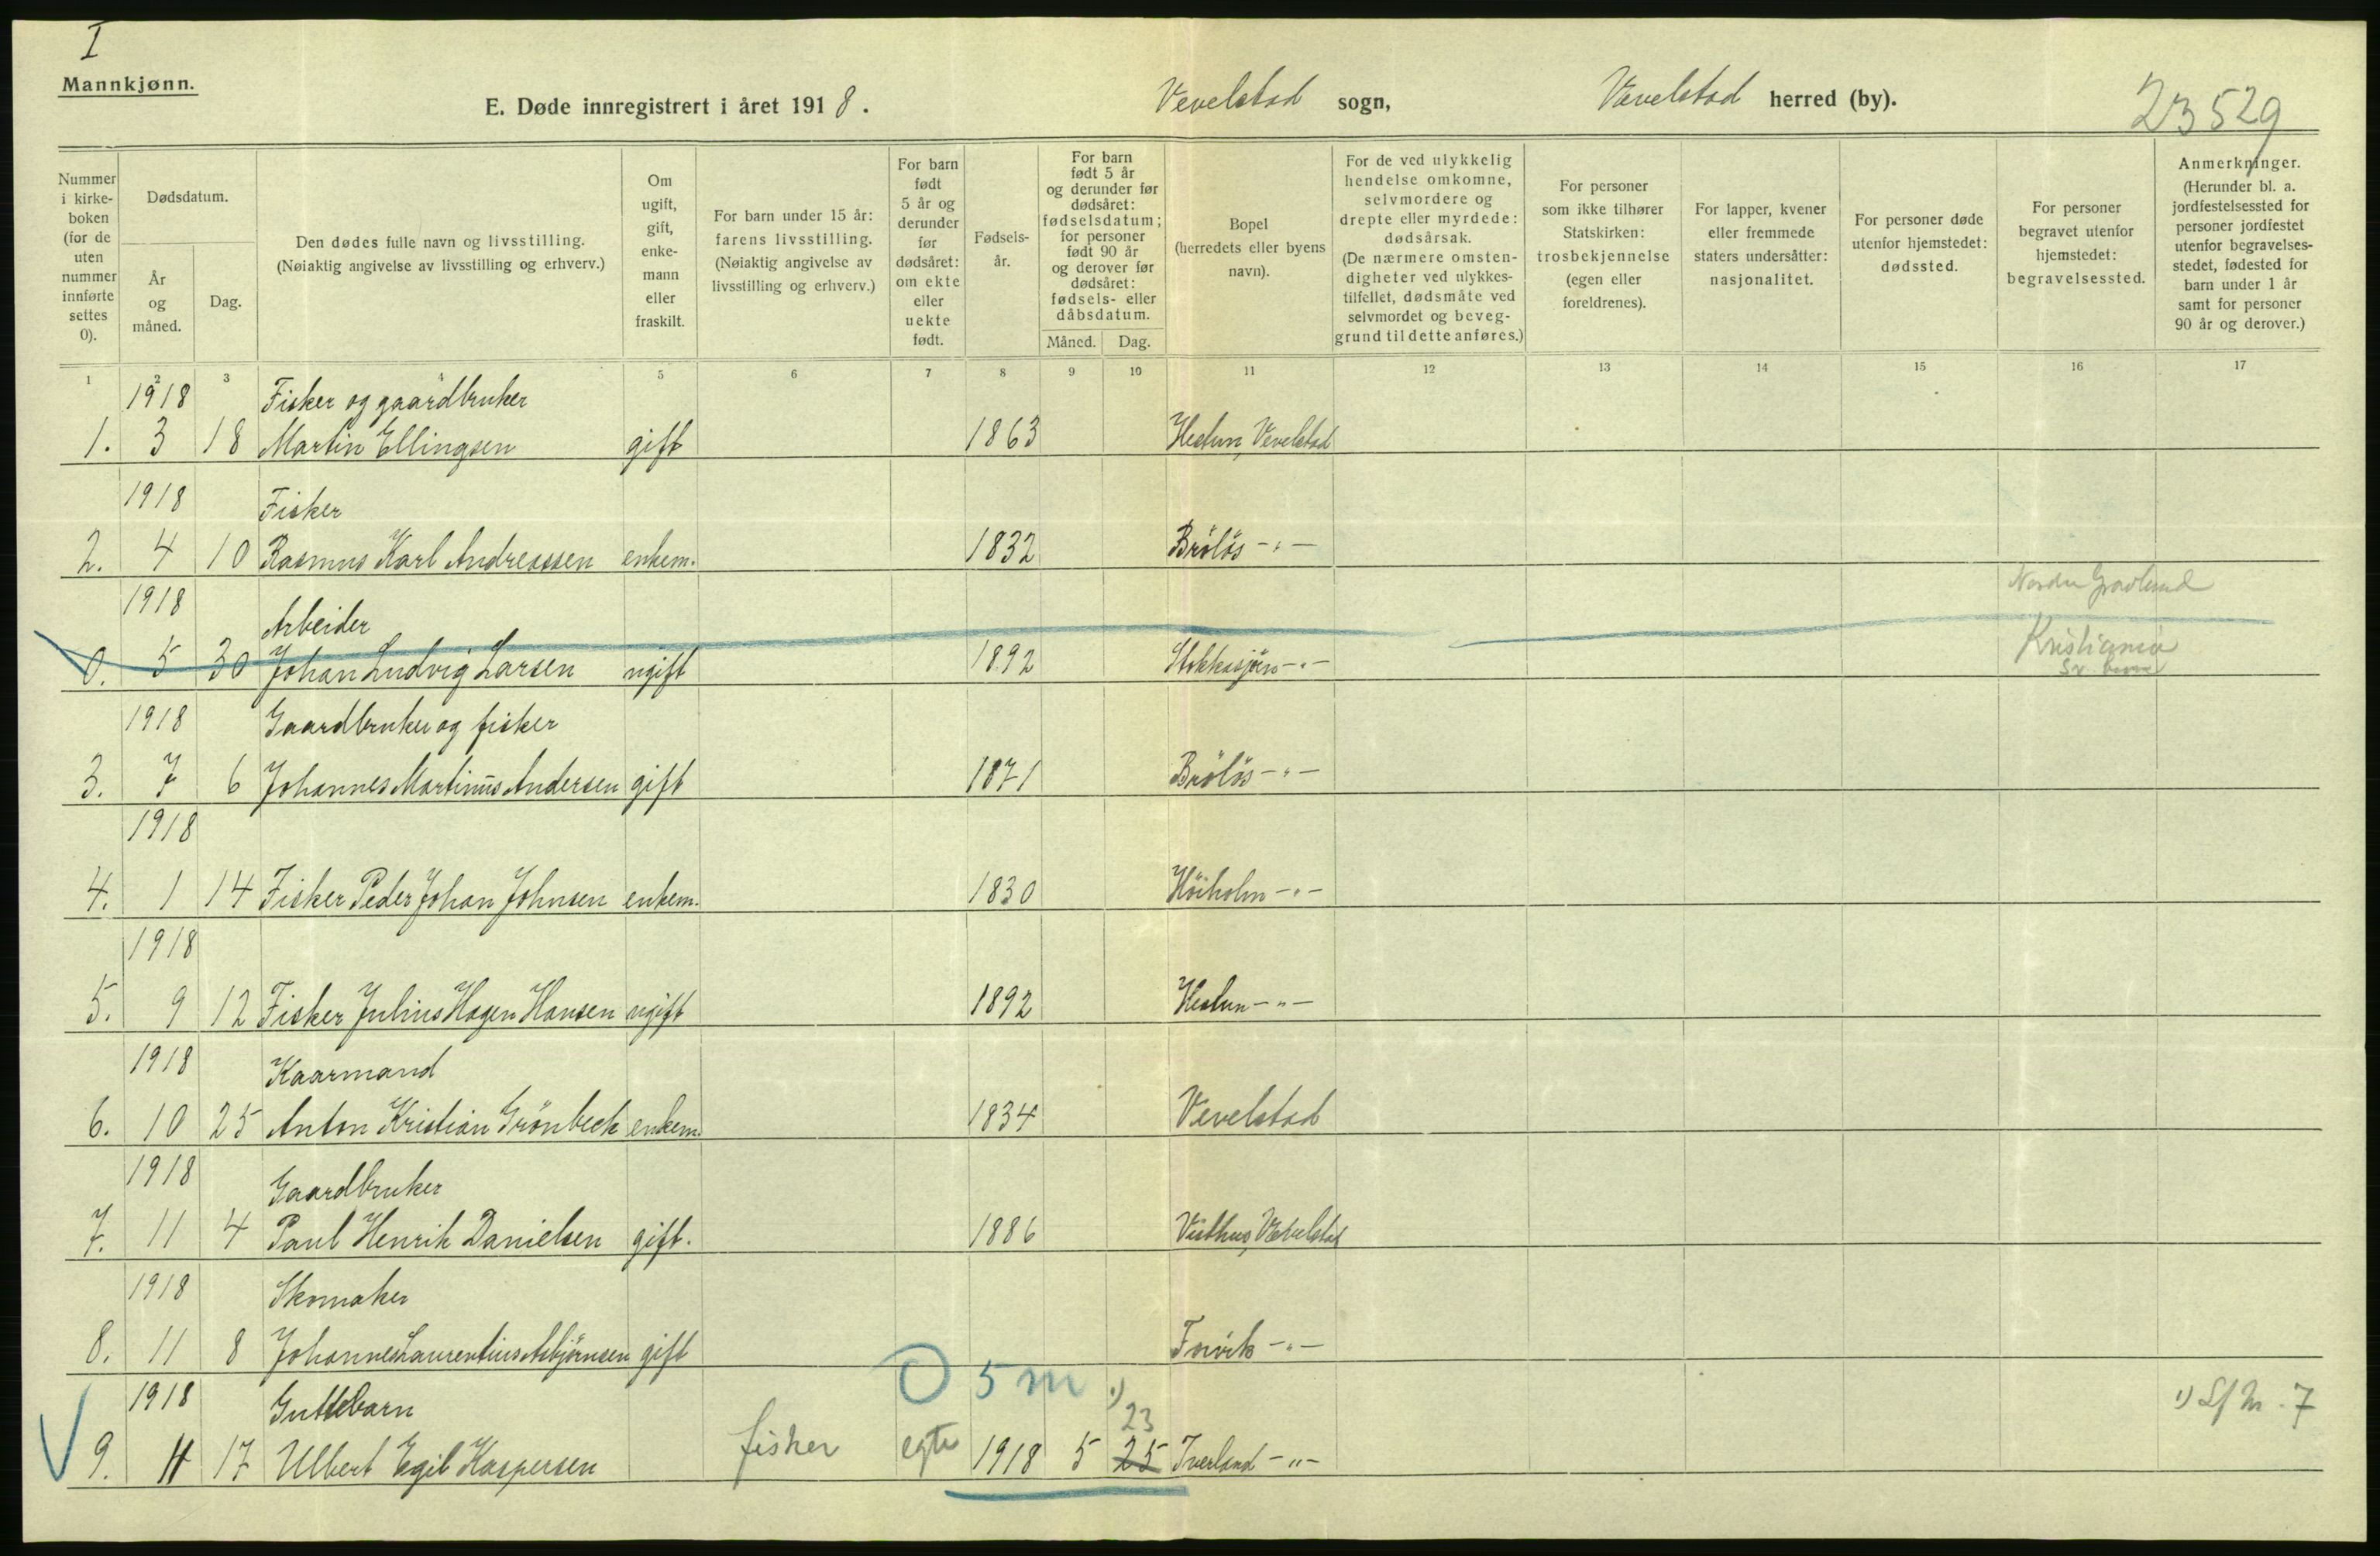 I
Mannkjønn.
E. Døde innregistrert i året 1918. Vevelstad sogn, Vevelstad herred (by).
23529
Nummer i kirke- boken (for de uten nummer innførte settes 0).
Dødsdatum.
År og måned.
Dag.
Den dødes fulle navn og livsstilling.
(Nøiaktig angivelse av livsstilling og erhverv.)
Om ugift, gift, enke- mann eller fraskilt.
For barn under 15 år: farens livsstilling.
(Nøiaktig angivelse av livsstilling og erhverv.)
For barn født 5 år og derunder før dødsåret: om ekte eller uekte født.
Fødsels- år.
For barn født 5 år og derunder før dødsåret: fødselsdatum; for personer født 90 år og derover før dødsåret: fødsels- eller dåbsdatum.
Måned. Dag.
Bopel (herredets eller byens navn).
For de ved ulykkelig hendelse omkomne, selvmordere og drepte eller myrdede: dødsårsak.
(De nærmere omsten- digheter ved ulykkes- tilfellet, dødsmåte ved selvmordet og beveg- grund til dette anføres.)
For personer som ikke tilhører Statskirken: trosbekjennelse (egen eller foreldrenes).
For lapper, kvener eller fremmede staters undersåtter: nasjonalitet.
For personer døde utenfor hjemstedet: dødssted.
For personer begravet utenfor hjemstedet: begravelsessted.
Anmerkninger.
(Herunder bl. a. jordfestelsessted for personer jordfestet utenfor begravelses- stedet, fødested for barn under 1 år samt for personer 90 år og derover.)
1 2 3 4 5 6 7 8 9 10 11 12 13 14 15 16 17
1918 Fisker og gaardbruker
1. 3 18 Martin Ellingsen gift 1863 Hestun, Vevelstad
1918 Fisker
2. 4 10 Rasmus Karl Andreassen enkem. 1832 Brölös -"-
1918 Arbeider Nordre Gravlund
0. 5 30 Johan Ludvig Larsen ugift 1892 Stokkasjöen -"- Kristiania
1918 Gaardbruker og fisker
3. 7 6 Johannes Martinus Andersen gift 1871 Brölös -"-
1918
4. 1 14 Fisker Peder Johan Johnsen enkem. 1830 Höiholm -"-
1918
5. 9 12 Fisker Julius Hagen Hansen ugift 1892 Hestun -"-
1918 Kaarmand
6. 10 25 Anton Kristian Grönbech enkem. 1834 Vevelstad
1918 Gaardbruker
7. 11 4 Paul Henrik Danielsen gift. 1886 Visthus, Vevelstad
1918 Skomaker
8. 11 8 Johannes Laurentius Asbjörnsen gift Forvik -"-
O 5 m
1918 Guttebarn 1) 23 1) Lf Nr. 7
9. 11 17 Ulbert Egil Kaspersen fisker egte 1918 5 25 Iverland -"-